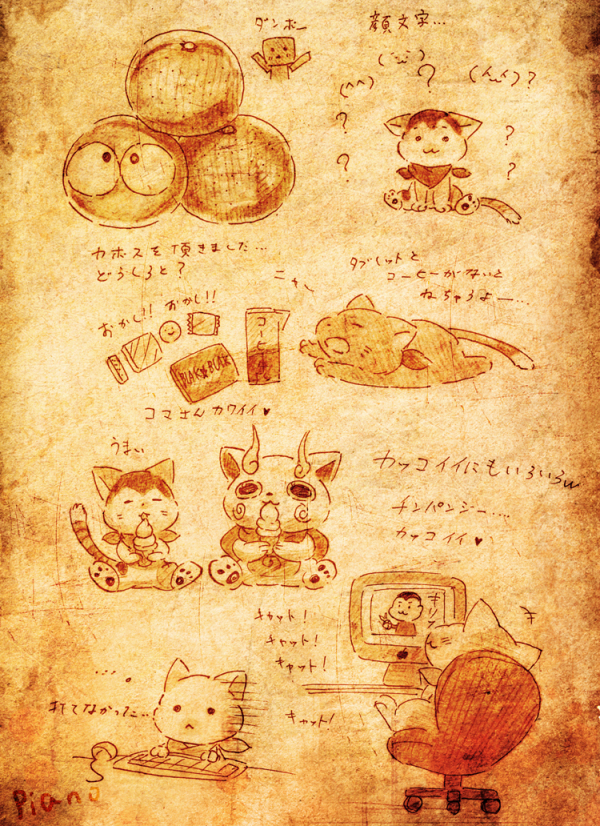 ダンボー
顔文字…
(^^)
?
(・_・)?
?
?
?
?
カボスを頂きました…
どうしろと?
タブレットと
コーヒーがないと
ねちゃうよー…
おかし!!
おかし!!
コーヒー
BLACK
コマさんカワイイ♥
うまい
カッコイイにもいろいろw
チンパンジー…
カッコイイ♥
キャット!
キャット!
キャット!
キャット!
打てなかった…
Piano